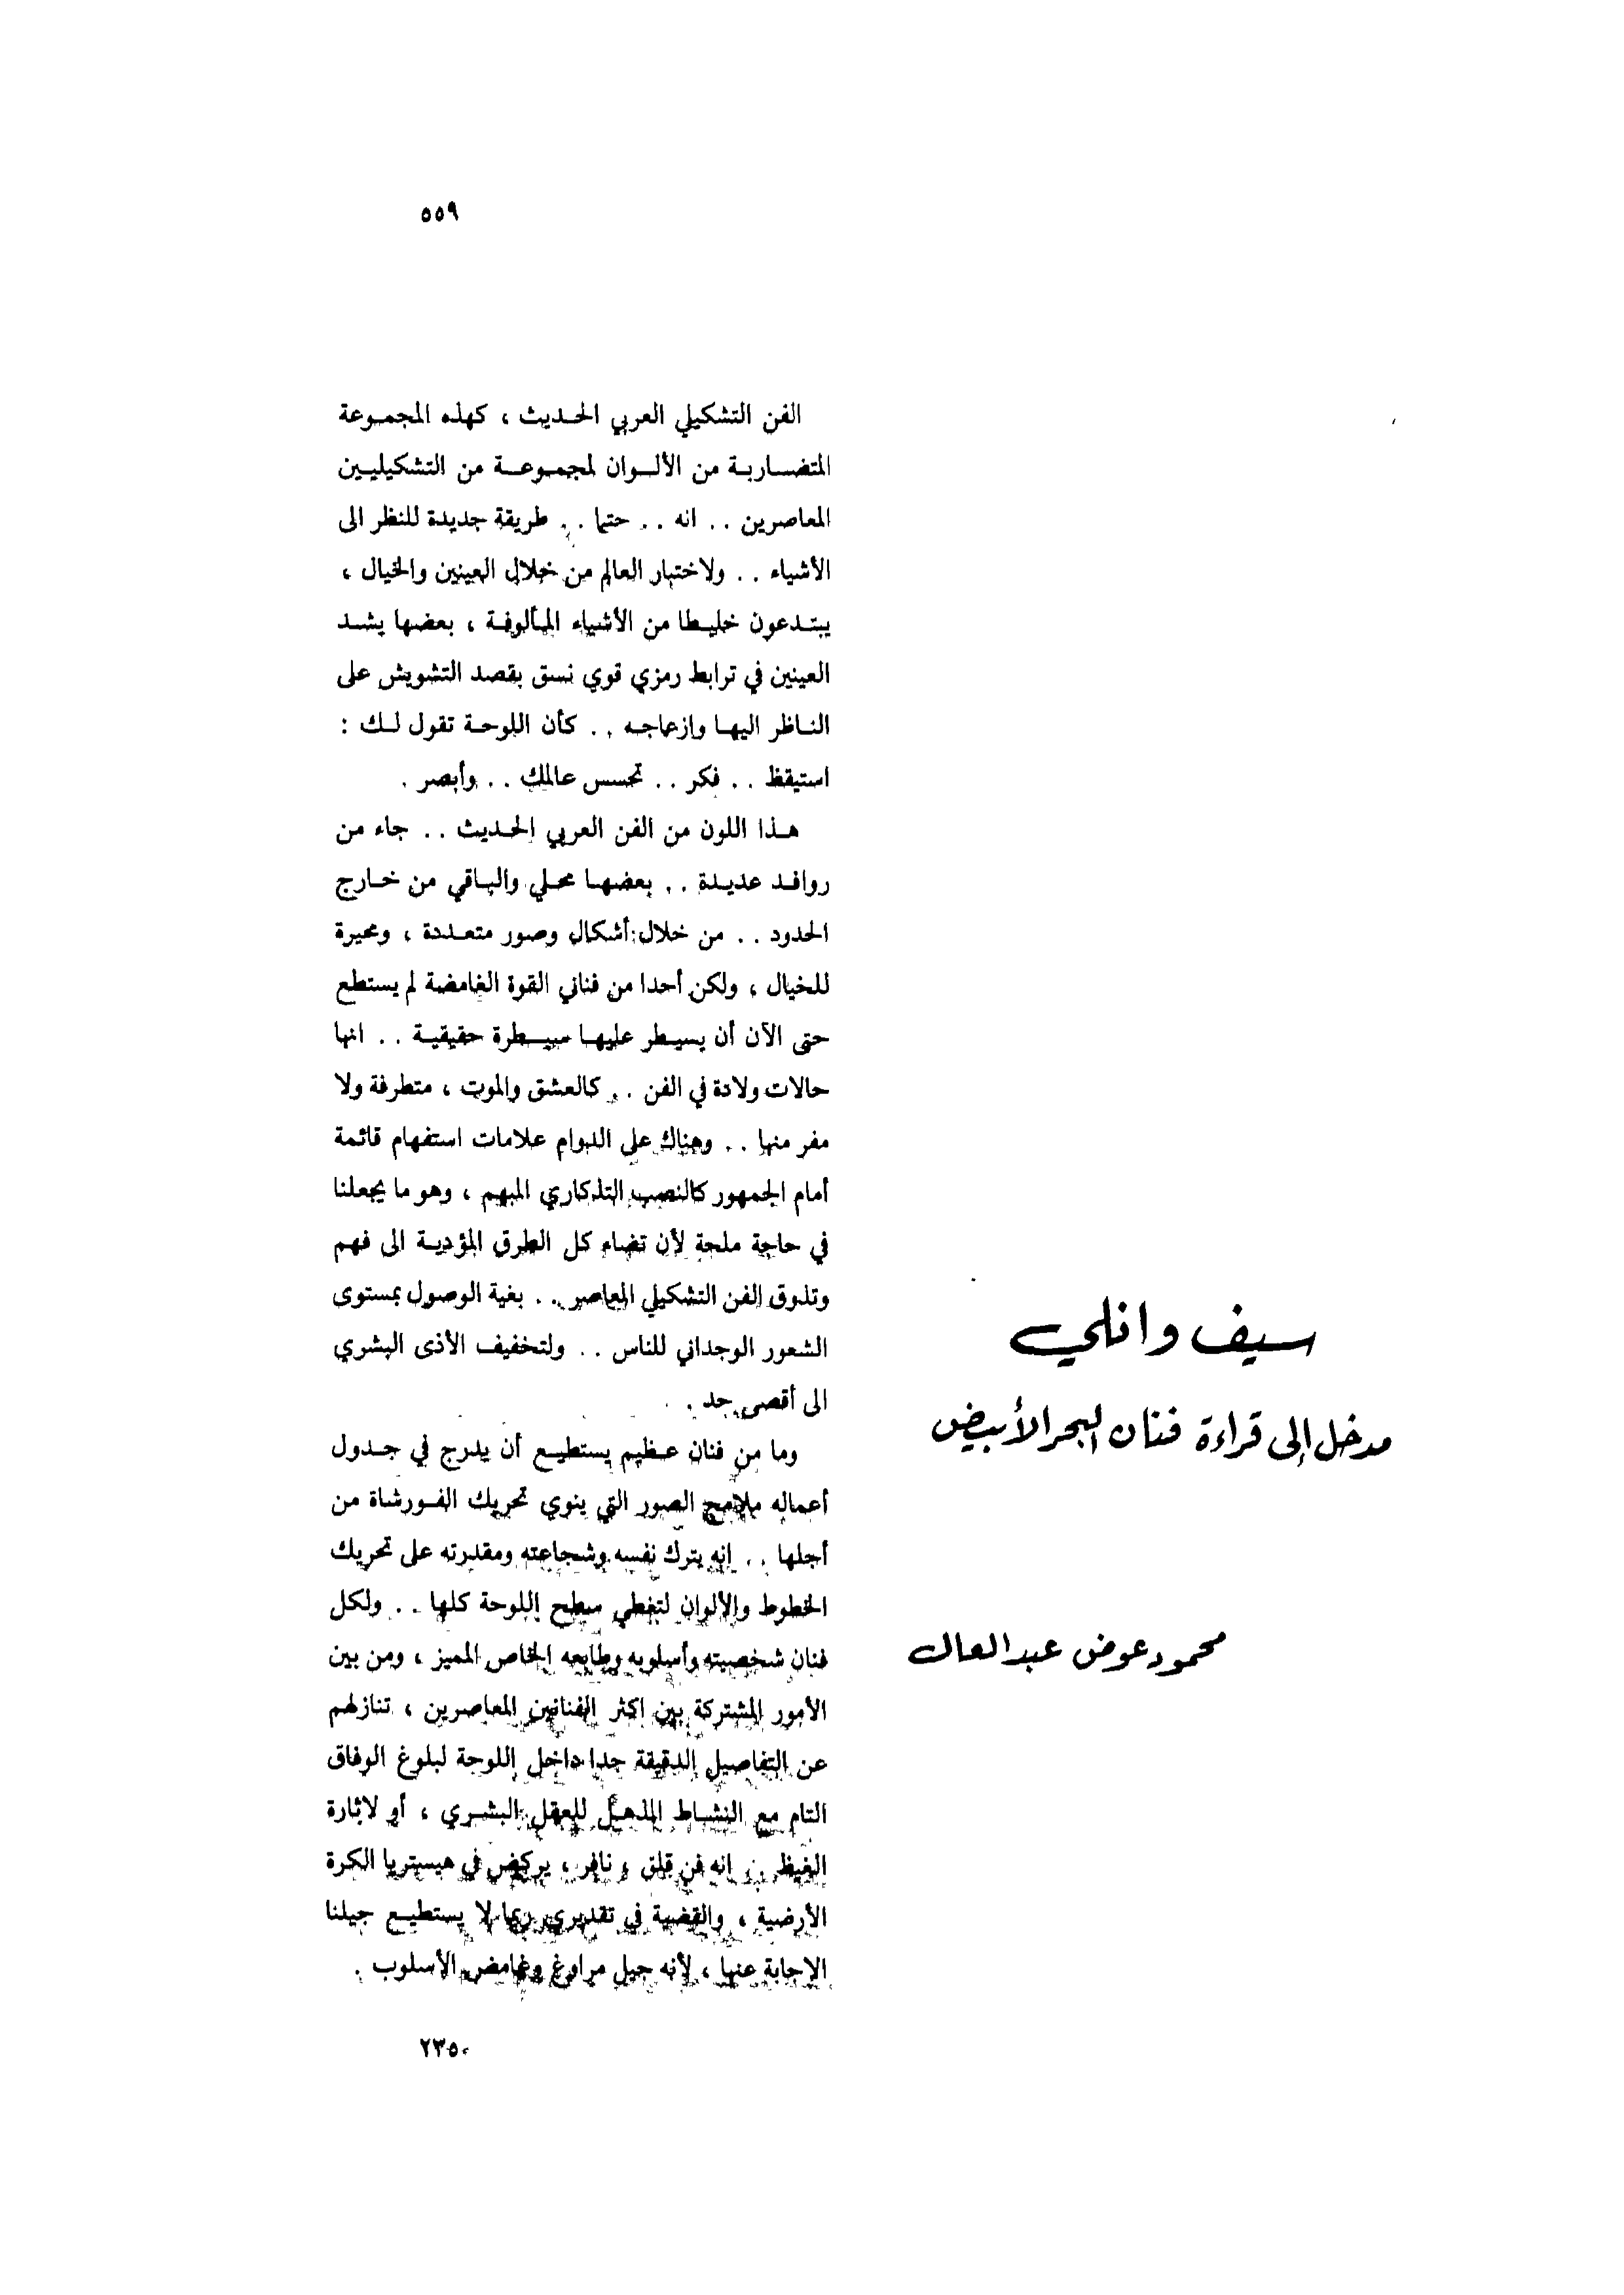 ٥٥٩
سيف وانلي
مدخل إلى قراءة فنان البحر الأبيض
محمود عوض عبد العال
الفن التشكيلي العربي الحديث ، كهذه المجموعة
المتضاربة من الألوان لمجموعة من التشكيليين
المعاصرين . . انه . . حتما . . طريقة جديدة للنظر الى
الأشياء . . ولاختبار العالم من خلال العينين والخيال ،
يبتدعون خليطا من الأشياء المألوفة ، بعضها يشد
العينين في ترابط رمزي قوي نسق بقصد التشويش على
الناظر اليها وازعاجه . . كأن اللوحة تقول لك :
استيقظ . . فكر . . تحسس عالمك . . وأبصر .
هذا اللون من الفن العربي الحديث . . جاء من
روافد عديدة . . بعضها محلي والباقي من خارج
الحدود . . من خلال أشكال وصور متعددة ، ومحيرة
للخيال ، ولكن أحدا من فناني القوة الغامضة لم يستطع
حتى الآن أن يسيطر عليها سيطرة حقيقية . . انها
حالات ولادة في الفن . . كالعشق والموت ، متطرفة ولا
مفر منها . . وهناك على الدوام علامات استفهام قائمة
أمام الجمهور كالنصب التذكاري المبهم ، وهو ما يجعلنا
في حاجة ملحة لأن تضاء كل الطرق المؤدية الى فهم
وتذوق الفن التشكيلي المعاصر . . بغية الوصول بمستوى
الشعور الوجداني للناس . . ولتخفيف الأذى البشري
الى أقصى حد .
وما من فنان عظيم يستطيع أن يدرج في جدول
أعماله ملامح الصور التي ينوي تحريك الفورشاة من
أجلها . . انه يترك نفسه وشجاعته ومقدرته على تحريك
الخطوط والألوان لتغطي سطح اللوحة كلها . . ولكل
فنان شخصيته وأسلوبه وطابعه الخاص المميز ، ومن بين
الأمور المشتركة بين اكثر الفنانين المعاصرين ، تنازلهم
عن التفاصيل الدقيقة جدا داخل اللوحة لبلوغ الوفاق
التام مع النشاط المذهل للعقل البشري ، أو لاثارة
الغيظ . . انه فن قلق ، نافر ، يركض في هيستريا الكرة
الأرضية ، والقضية في تقديري ربما لا يستطيع جيلنا
الاجابة عنها ، لأنه جيل مراوغ وغامض الأسلوب .
٢٣٥٠